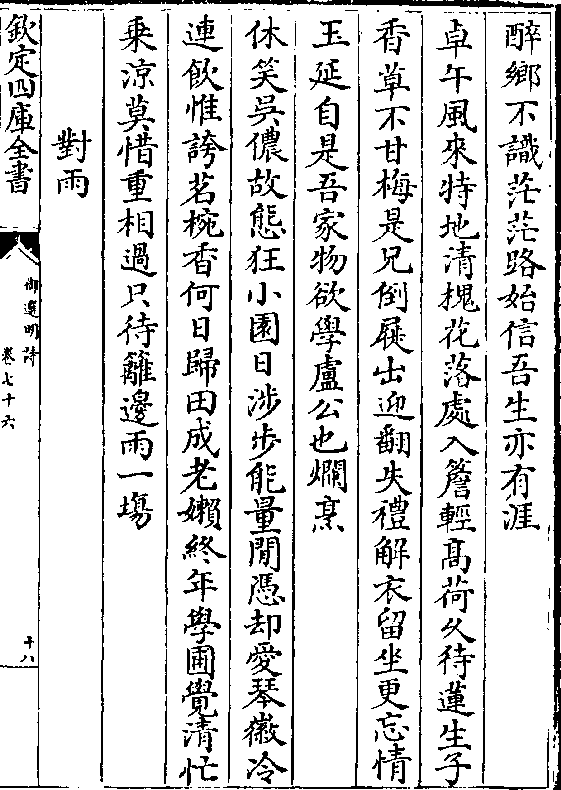 醉鄉不識茫茫路始信吾生亦有涯
卓午風來特地清槐花落處入簷輕高荷久待蓮生子
香草不甘梅是兄倒屣出迎翻失禮解衣留坐更忘情
玉延自是吾家物欲學盧公也爛烹
休笑吳儂故態狂小園日涉歩能量閒憑却愛琴徽冷
連飲惟誇茗椀香何日歸田成老嬾終年學圃覺清忙
乗涼莫惜重相過只待籬邊雨一塲
對雨
欽定四庫全書
御選明詩
卷七十六
十八